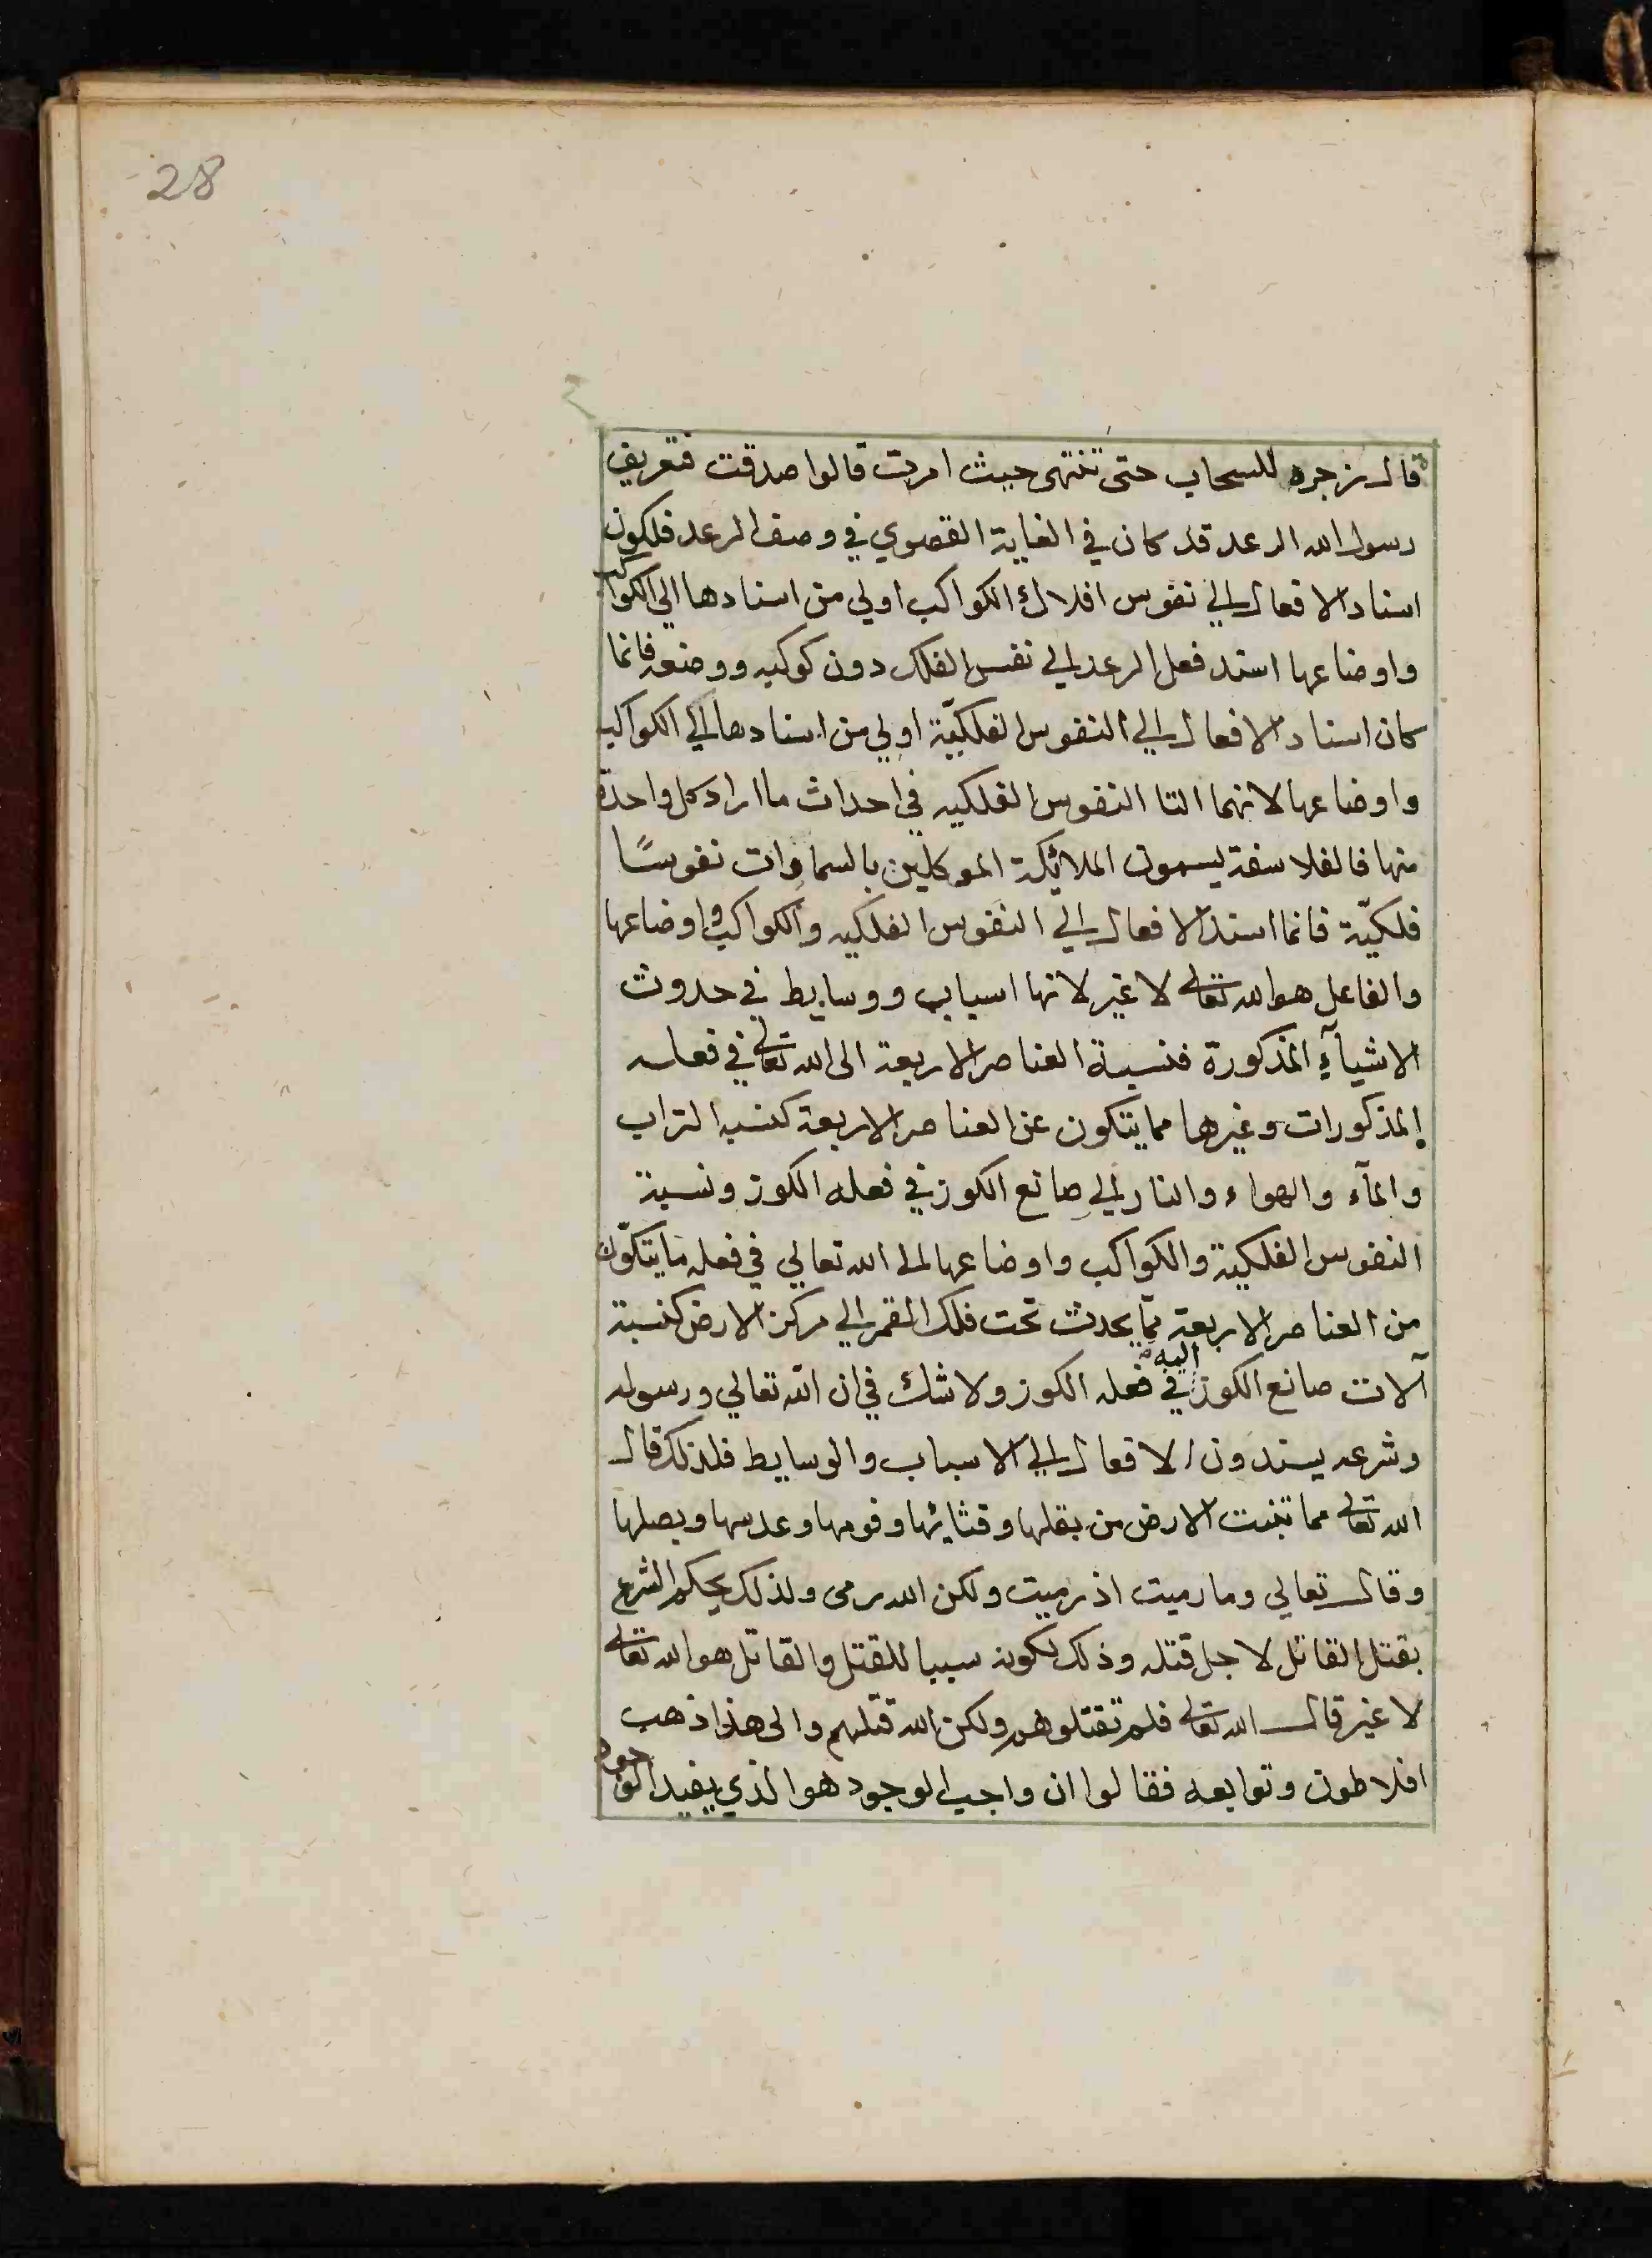 28
قال زجره للسحاب حتى تنتهى حيث امرت قالوا صدقت فتعريف
رسول الله الرعد قد كان في الغاية القصوي في وصف الرعد فلكون
اسناد الافعال الي نفوس افلاك الكواكب اولي من اسنادها الي الكواكب
واوضاعها اسند فعل الرعد الي نفس الفلك دون كوكبه ووضعه فانما
كان اسناد الافعال الي النفوس الفلكيّة اولي من اسنادها الي الكواكب
واوضاعها لانهما التا النفوس الفلكيه في احداث ما اراد كل واحدة
منها فالفلاسفة يسمون الملائكة الموكلين بالسماوات نفوسًا
فلكيّة فانما اسند الافعال الي النفوس الفلكيه والكواكب واوضاعها
والفاعل هو الله تعالى لا غير لانها اسباب ووسايط في حدوث
الاشيآءِ المذكورة فنسبة العناصر الاربعة الى الله تعالى في فعله
المذكورات وغيرها مما يتكون عن العناصر الاربعة كنسبه التراب
والمآء والهواء والنار الي صانع الكوز في فعله الكوز ونسبة
النفوس الفلكية والكواكب واوضاعها الى الله تعالي في فعله ما يتكوّن
من العناصر الاربعة ممّا يحدث تحت فلك القمر الي مركز الارض كنسبة
آلات صانع الكوز اليه في فعله الكوز ولا شك في ان الله تعالي ورسوله
وشرعه يسندون الافعال الي الاسباب والوسايط فلذلك قال
الله تعالى مما تنبت الارض من بقلها وقثائها وفومها وعدسها وبصلها
وقال تعالي وما رميت اذ رميت ولكن الله رمى ولذلك يحكم الشرع
بقتل القاتل لاجل قتله وذلك لكونه سببا للقتل والقاتل هو الله تعالى
لا غير قال الله تعالى فلم تقتلوهم ولكن الله قتلهم والى هذا ذهب
افلاطون وتوابعه فقالوا ان واجب الوجود هو الذي يفيد الوجود